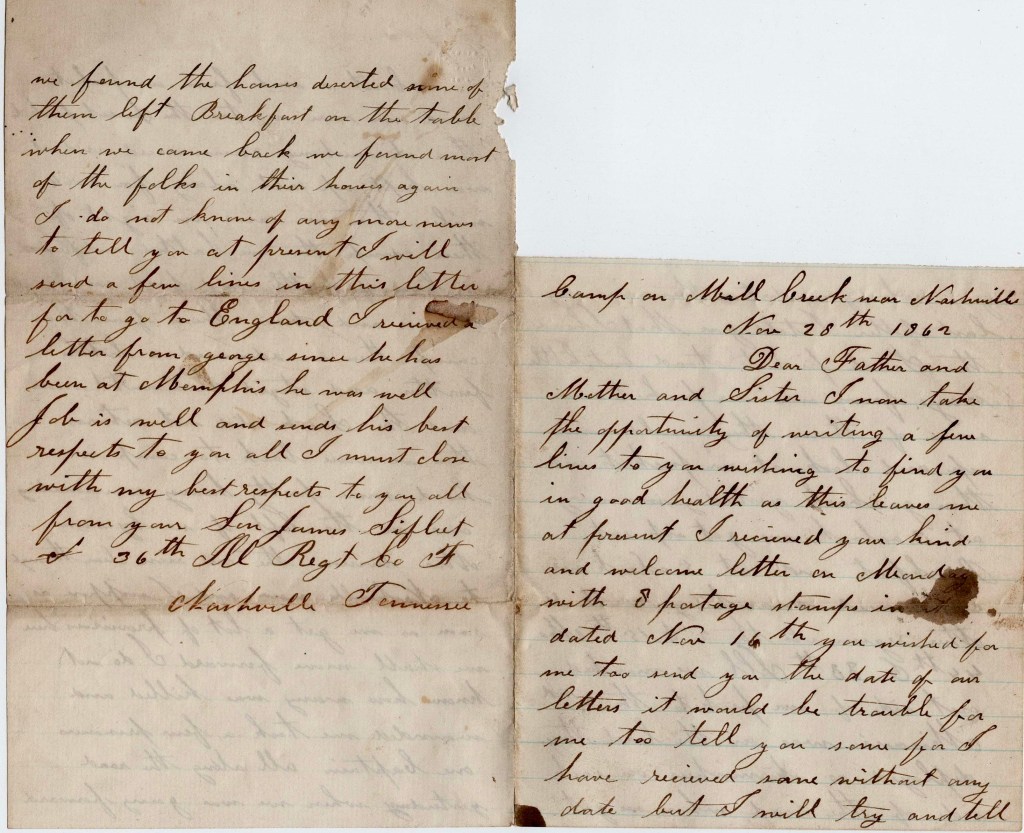 we found the houses deserted some of
them left Breakfast on the table
when we came back we found most
of the folks in their houses again
I do not know of any more news
to tell you at present I will
send a few lines in this letter
for to go to England I recieved a
letter from george since he has
been at Memphis he was well
Job is well and sends his best
respects to you all I must close
with my best respects to you all
from your Son James Sifleet
36th Ill Regt Co F
Nashville Tennessee
Camp on Mill Creek near Nashville
Nov 28th 1862
Dear Father and
Mother and Sister I now take
the opportunity of writing a few
lines to you wishing to find you
in good health as this leaves me
at present I recieved your kind
and welcome letter on Monday
with 8 postage stamps in it
dated Nov 16th you wished for
me too send you the date of our
letters it would be trouble for
me too tell you some for I
have recieved some without any
date but I will try and tell